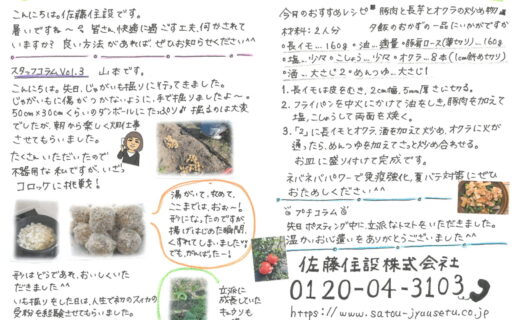 こんにちは。佐藤住設です。
暑いですね〜 皆さん、快適に過ごす工夫、何かされて
いますか? 良い方法があれば、ぜひお知らせください^^
スタッフコラムVol.3 山本です。
こんにちは。先日、じゃがいも掘りに行ってきました。
じゃがいもに傷がつかないように、手で掘りましたよ〜。
50cm×30cmくらいのダンボールにたっぷり♪ 掘るのは大変
でしたが、朝から楽しく畑仕事
させてもらいました。
たくさんいただいたので
不器用な私ですが、いざっ
コロッケに挑戦!
湯がいて、丸めて、
ここまでは、おぉ〜!
形になったのですが
揚げはじめた瞬間、
くずれてしまいました
でも、がんばった〜!
形はどうであれ、おいしくいた
だきました^^
いも掘りをした日は、人生で初のスイカの
受粉を経験させてもらいました。
立派に
成長していた
キュウリも
今日のおすすめレシピ 豚肉と長芋とオクラの炒め物
夕飯のおかずの一品にいかがですか
材料:2人分
○長イモ…160g ○油…適量 ○豚肩ロース(薄切り)…160g
○塩…少々 ○こしょう…少々 ○オクラ…8本(1cm斜め切り)
○酒…大さじ2 ○めんつゆ…大さじ1
1.長イモは皮をむき、2cm幅、5mm厚さに切る。
2.フライパンを中火にかけて油をしき、豚肉を加えて
塩、こしょうして両面を焼く。
3.「2」に長イモとオクラ、酒を加えて炒め、オクラに火が
通ったら、めんつゆを加えてさっと炒め合わせる。
お皿に盛り付けて完成です。
ネバネバパワーで免疫強化、夏バテ対策にぜひ
おためしください^^
プチコラム
先日ポスティング中に、立派なトマトをいただきました。
温かいお心遣いをありがとうございました^^
佐藤住設株式会社
0120-04-3103
https://www.satou-jyuusetu.co.jp